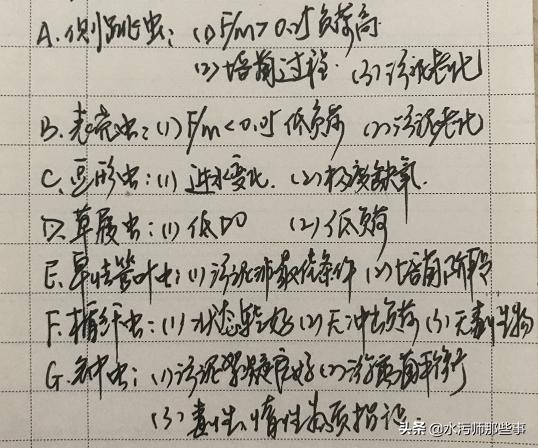 A.侧跳虫：(1) F/m>0.25负荷高
(2)培菌过程 (3)污泥老化
B.表壳虫：(1)F/m<0.25低负荷 (2)污泥老化
C.豆形虫：(1)进水变化.(2)极度缺氧.
D.草履虫：(1)低DO (2)低负荷
E.虫：(1)污泥条件 (2)培菌阶段
F.楯纤虫：(1)状态较好(2)无冲击负荷(3)无毒性物
G.钟虫：(1)污泥凝度好(2)平衡
(3)毒性、惰性物质指
头条 @水污师那些事